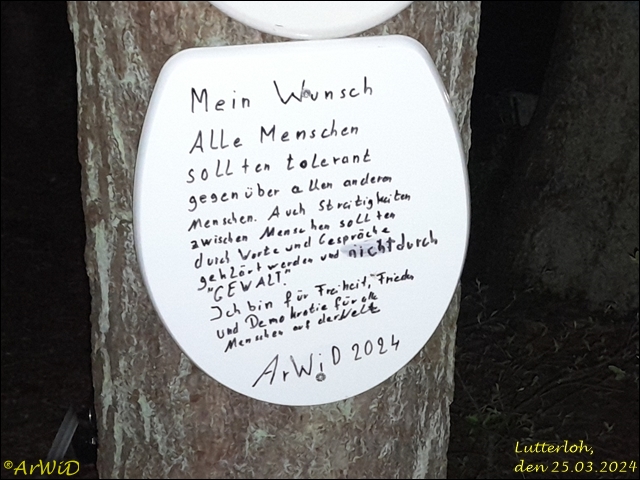 Mein Wunsch
Alle Menschen
sollten tolerant
gegenüber allen anderen
Menschen. Auch Streitigkeiten
zwischen Menschen sollten
durch Worte und Gespräche
geklört werden und nicht durch
"GEWALT".
Ich bin für Freiheit, Frieden
und Demokratie für alle
Menschen auf der Welt
ArWiD 2024
©ArWiD
Lutterloh,
den 25.03.2024